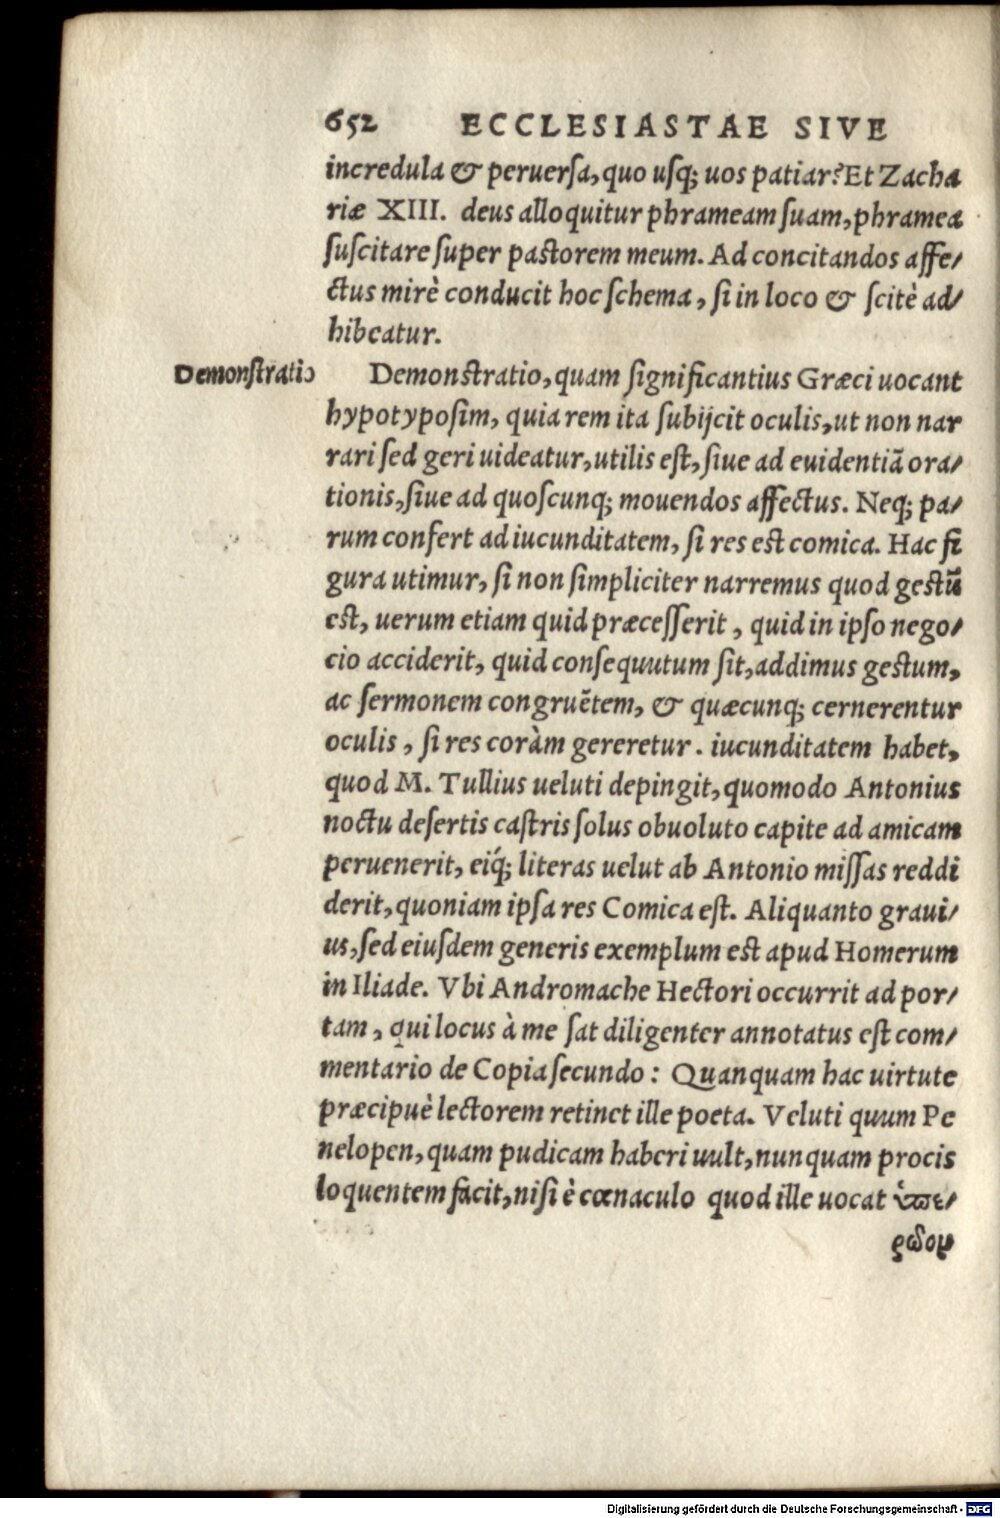 652 ECCLESIASTAE SIVE
incredula & peruersa, quo usq; uos patiar? Et Zacha
riæ XIII. deus alloquitur phrameam suam, phramea
suscitare super pastorem meum. Ad concitandos affe/
ctus mirè conducit hoc schema, si in loco & scitè ad/
hibeatur.
Demonstratio
Demonstratio, quam significantius Græci uocant
hypotyposim, quia rem ita subijcit oculis, ut non nar
rari sed geri uideatur, utilis est, siue ad euidentiã ora/
tionis, siue ad quoscunq; mouendos affectus. Neq; pa/
rum confert ad iucunditatem, si res est comica. Hac fi
gura utimur, si non simpliciter narremus quod gestũ
est, uerum etiam quid præcesserit, quid in ipso nego/
cio acciderit, quid consequutum sit, addimus gestum,
ac sermonem congruẽtem, & quæcunq; cernerentur
oculis, si res coràm gereretur. iucunditatem habet,
quod M. Tullius ueluti depingit, quomodo Antonius
noctu desertis castris solus obuoluto capite ad amicam
peruenerit, eiq́; literas uelut ab Antonio missas reddi
derit, quoniam ipsa res Comica est. Aliquanto graui/
us, sed eiusdem generis exemplum est apud Homerum
in Iliade. Vbi Andromache Hectori occurrit ad por/
tam, qui locus à me sat diligenter annotatus est com/
mentario de Copia secundo: Quanquam hac uirtute
præcipuè lectorem retinet ille poeta. Veluti quum Pe
nelopen, quam pudicam haberi uult, nunquam procis
loquentem facit, nisi è cœnaculo quod ille uocat ὑπε/
ρῶομ
Digitalisierung gefördert durch die Deutsche Forschungsgemeinschaft - DFG